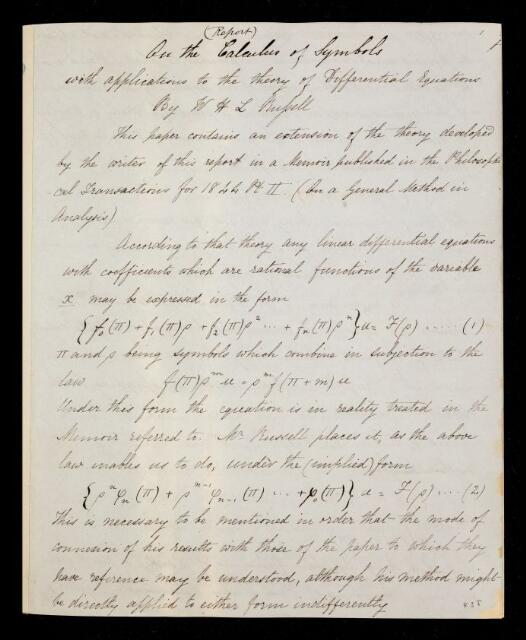 (Report)
On the Calculus of Symbols
with applications to the theory of Differential Equations
By W H L Russell
This paper contains an extension of the theory developed
by the writer of this report in a Memoir published in the Philosophi
cal Transactions for 1844 Pt II (On a General Method in
Analysis)
According to that theory any linear differential equations
with coefficients which are rational functions of the variable
x may be expressed in the form
{f₀(π) + f₁(π)ρ + f₂(π)ρ² ... + fₙ(π)ρⁿ}u = F(ρ) ..... (1)
π and ρ being symbols which combine in subjection to the
law f(π)ρᵐu = ρᵐf(π+m)u
Under this form the equation is in reality treated in the
Memoir referred to. Mr Russell places it, as the above
law enables us to do, under the (implied) form
{ρⁿφₙ(π) + ρⁿ⁻¹φₙ₋₁(π) ... + φ₀(π)}u = F(ρ) .... (2)
This is necessary to be mentioned in order that the mode of
connexion of his results with those of the paper to which they
have reference may be understood, although his method might
be directly applied to either form indifferently